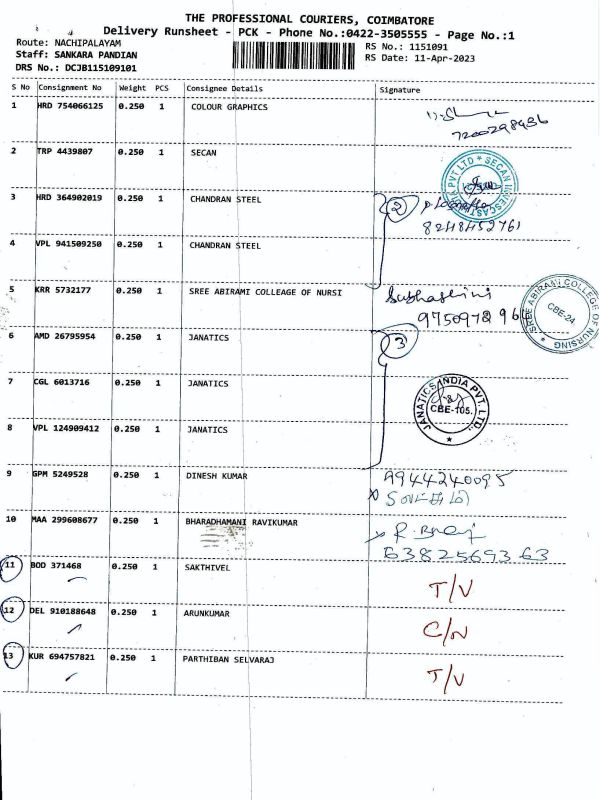 THE PROFESSIONAL COURIERS, COIMBATORE
Delivery Runsheet - PCK - Phone No.:0422-3505555 - Page No.:1
Route: NACHIPALAYAM
RS No.: 1151091
Staff: SANKARA PANDIAN
RS Date: 11-Apr-2023
DRS No.: DCJB115109101
S No Consignment No Weight PCS Consignee Details Signature
1 HRD 754066125 0.250 1 COLOUR GRAPHICS
2 TRP 4439807 0.250 1 SECAN
3 HRD 364902019 0.250 1 CHANDRAN STEEL 2
8248452761
4 VPL 941509250 0.250 1 CHANDRAN STEEL
5 KRR 5732177 0.250 1 SREE ABIRAMI COLLEAGE OF NURSI Subhashini
SREE ABIRAMI COLLEGE OF NURSING
CBE-24
6 AMD 26795954 0.250 1 JANATICS 3
7 CGL 6013716 0.250 1 JANATICS
JANATICS INDIA PVT. LTD.,
CBE-105.
8 VPL 124909412 0.250 1 JANATICS
9 GPM 5249528 0.250 1 DINESH KUMAR 9944240095
10 MAA 299608677 0.250 1 BHARADHAMANI RAVIKUMAR
6382569363
11 BOD 371468 0.250 1 SAKTHIVEL T/V
12 DEL 910188648 0.250 1 ARUNKUMAR C/N
13 KUR 694757821 0.250 1 PARTHIBAN SELVARAJ T/V